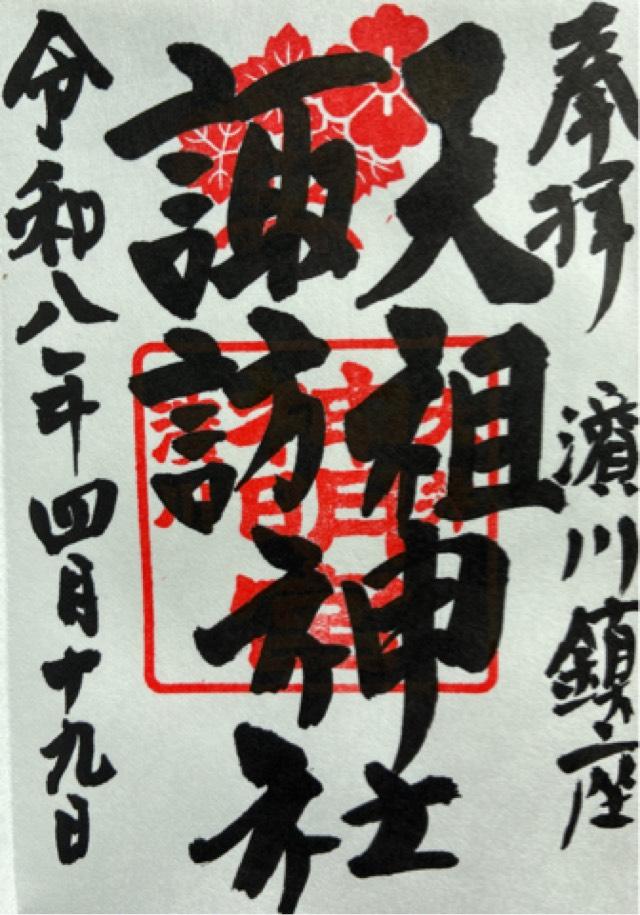 奉拝 濱川鎮座
天祖
諏訪
神社
令和八年四月十九日